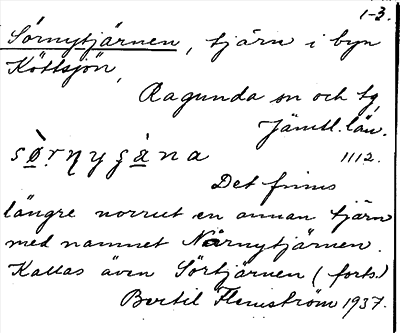 1-3.
Sörnytjärnen, tjärn i byn
Köttsjön,
Ragunda sn och tg,
Jämtl. län.
sø̀rṇyʂàna 1112.
Det finns
längre norrut en annan tjärn
med namnet Närnytjärnen.
Kallas även Sörtjärnen (forts.)
Bertil Flemström 1937.